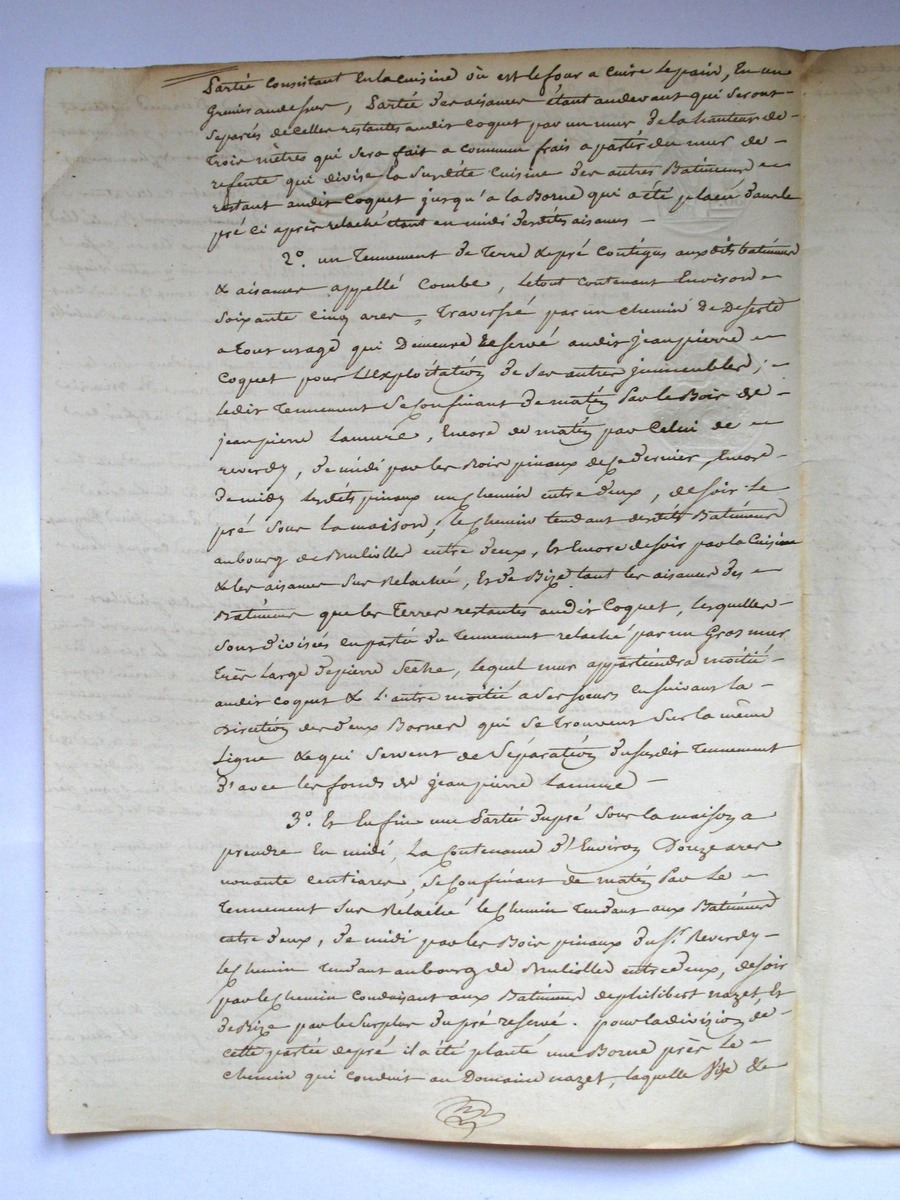 Partie Consistant En la cuisine où est le four a cuire le pain, En un
Grenier au dessus, Partie des aisances étant au devant qui seront
séparés de celles restantes audit Coquet par un mur de la hauteur de
trois mètres qui sera fait a commun frais a partir du mur de
refente qui divise la Susdite Cuisine des autres Batiments
restant audit Coquet jusqu'a la Borne qui a été placée dans le
pré ci après relaché étant en midi desdites aisances
2°. un Tennement de Terre & pré Contigus auxdits batiments
& aisances appellé Combe, le tout contenant Environ
soixante cinq ares, Traversé par un chemin de Deserte
a tout usage qui Demeure Réservé audit jeanpierre
Coquet pour l'Exploitation de ses autres jmmeubles;
ledit Tennement Se Confinant de matin Par le Bois de
jeanpierre Lamure, Encore de matin par Celui de
reverdy, de midi par les Bois pinaux de ce dernier Encore
de midy lesdits pinaux un chemin entre d'eux, de soir le
pré sous la maison, le Chemin tendant desdits Batiments
au bourg de Brullioles entre d'eux, Et Encore de soir par la Cuisine
& les aisances Sus Relaché, Et de Bize tant les aisances des
Batiments que les Terres restantes audit Coquet, lesquelles
sont divisées en partie du Tennement relaché par un Gros mur
très large de pierre Sèche, lequel mur appartiendra moitié
audit Coquet & L'autre moitié a ses soeurs En suivant la
Direction des deux Bornes qui se trouvent Sur la même
Ligne & qui Servent de Séparation du susdit Tennement
d'avec les fonds de jeanpierre Lamure
3°. Et Enfin une Partie du pré Sous la maison a
prendre En midi, La Contenance d'Environ Douze ares
nonante centiares, Se Confinant de matin Par Le
Tennement Sus Relaché le Chemin Tendant aux Batiments
entre d'eux, de midi par les Bois pinaux du Sr. Reverdy
le Chemin Tendant au bourg de Brullioles entre d'eux, de soir
par le Chemin Conduisant aux Batiments de philibert nazet, Et
de Bize par le Surplus du pré reservé. pour la division de
cette partie de pré il a été planté une Borne près le
chemin qui conduit au Domaine nazet, laquelle &